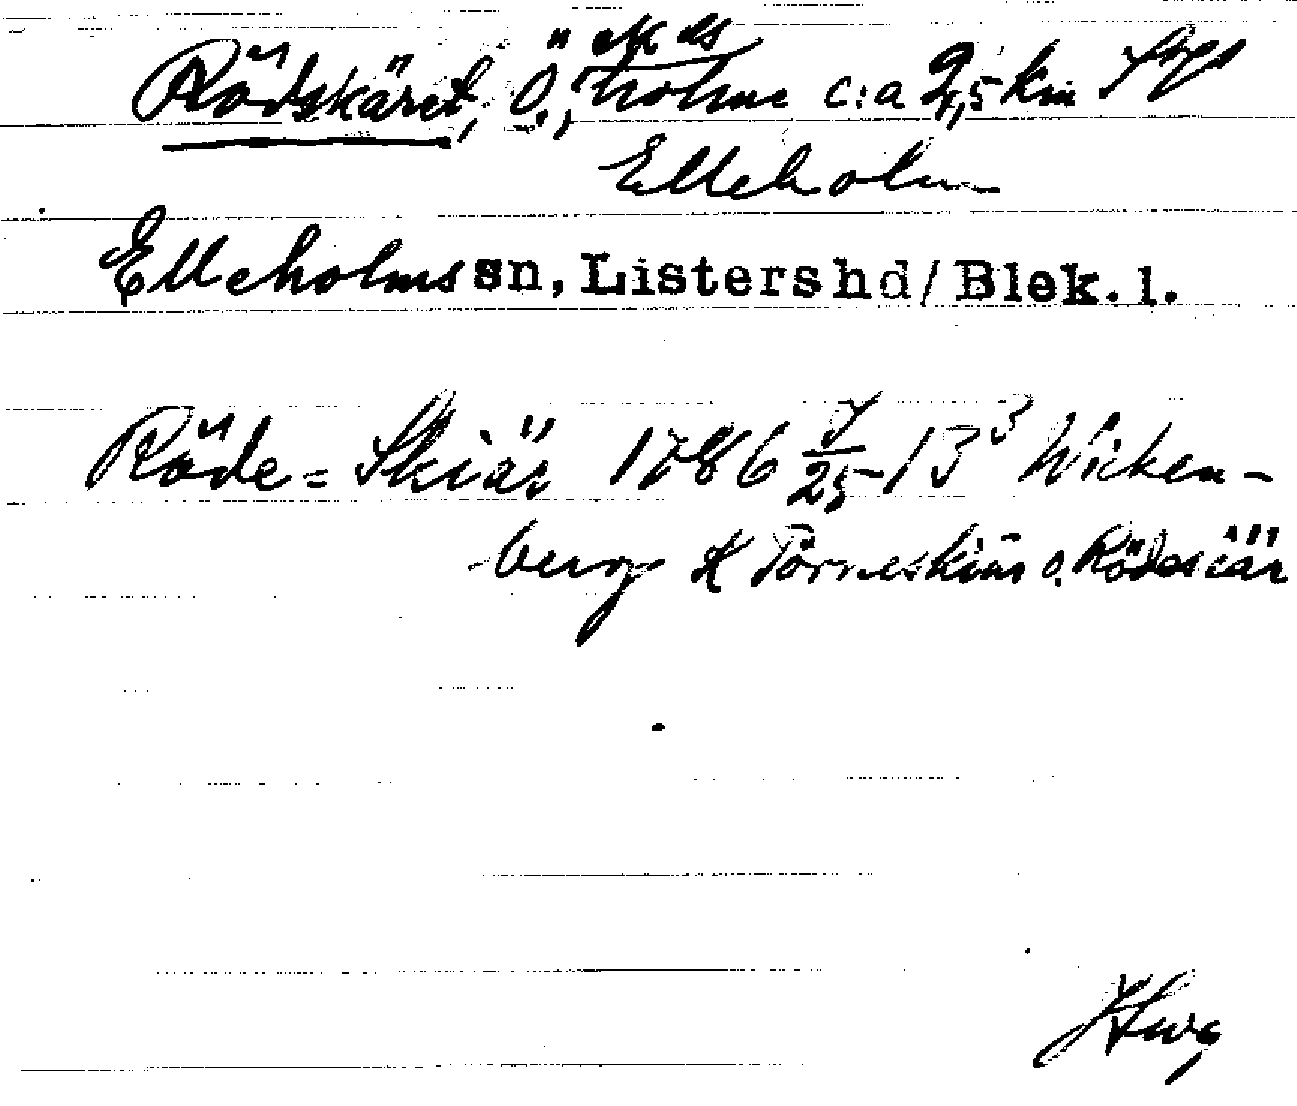 Rödskäret, Ö, holme c:a 2,5 km
Elleholm
Elleholms sn, Listers hd/Blek. l.
Röde=Skiär 1786 7/25-13³ Wicken-
berg K Törneskiär o. Rödesiär